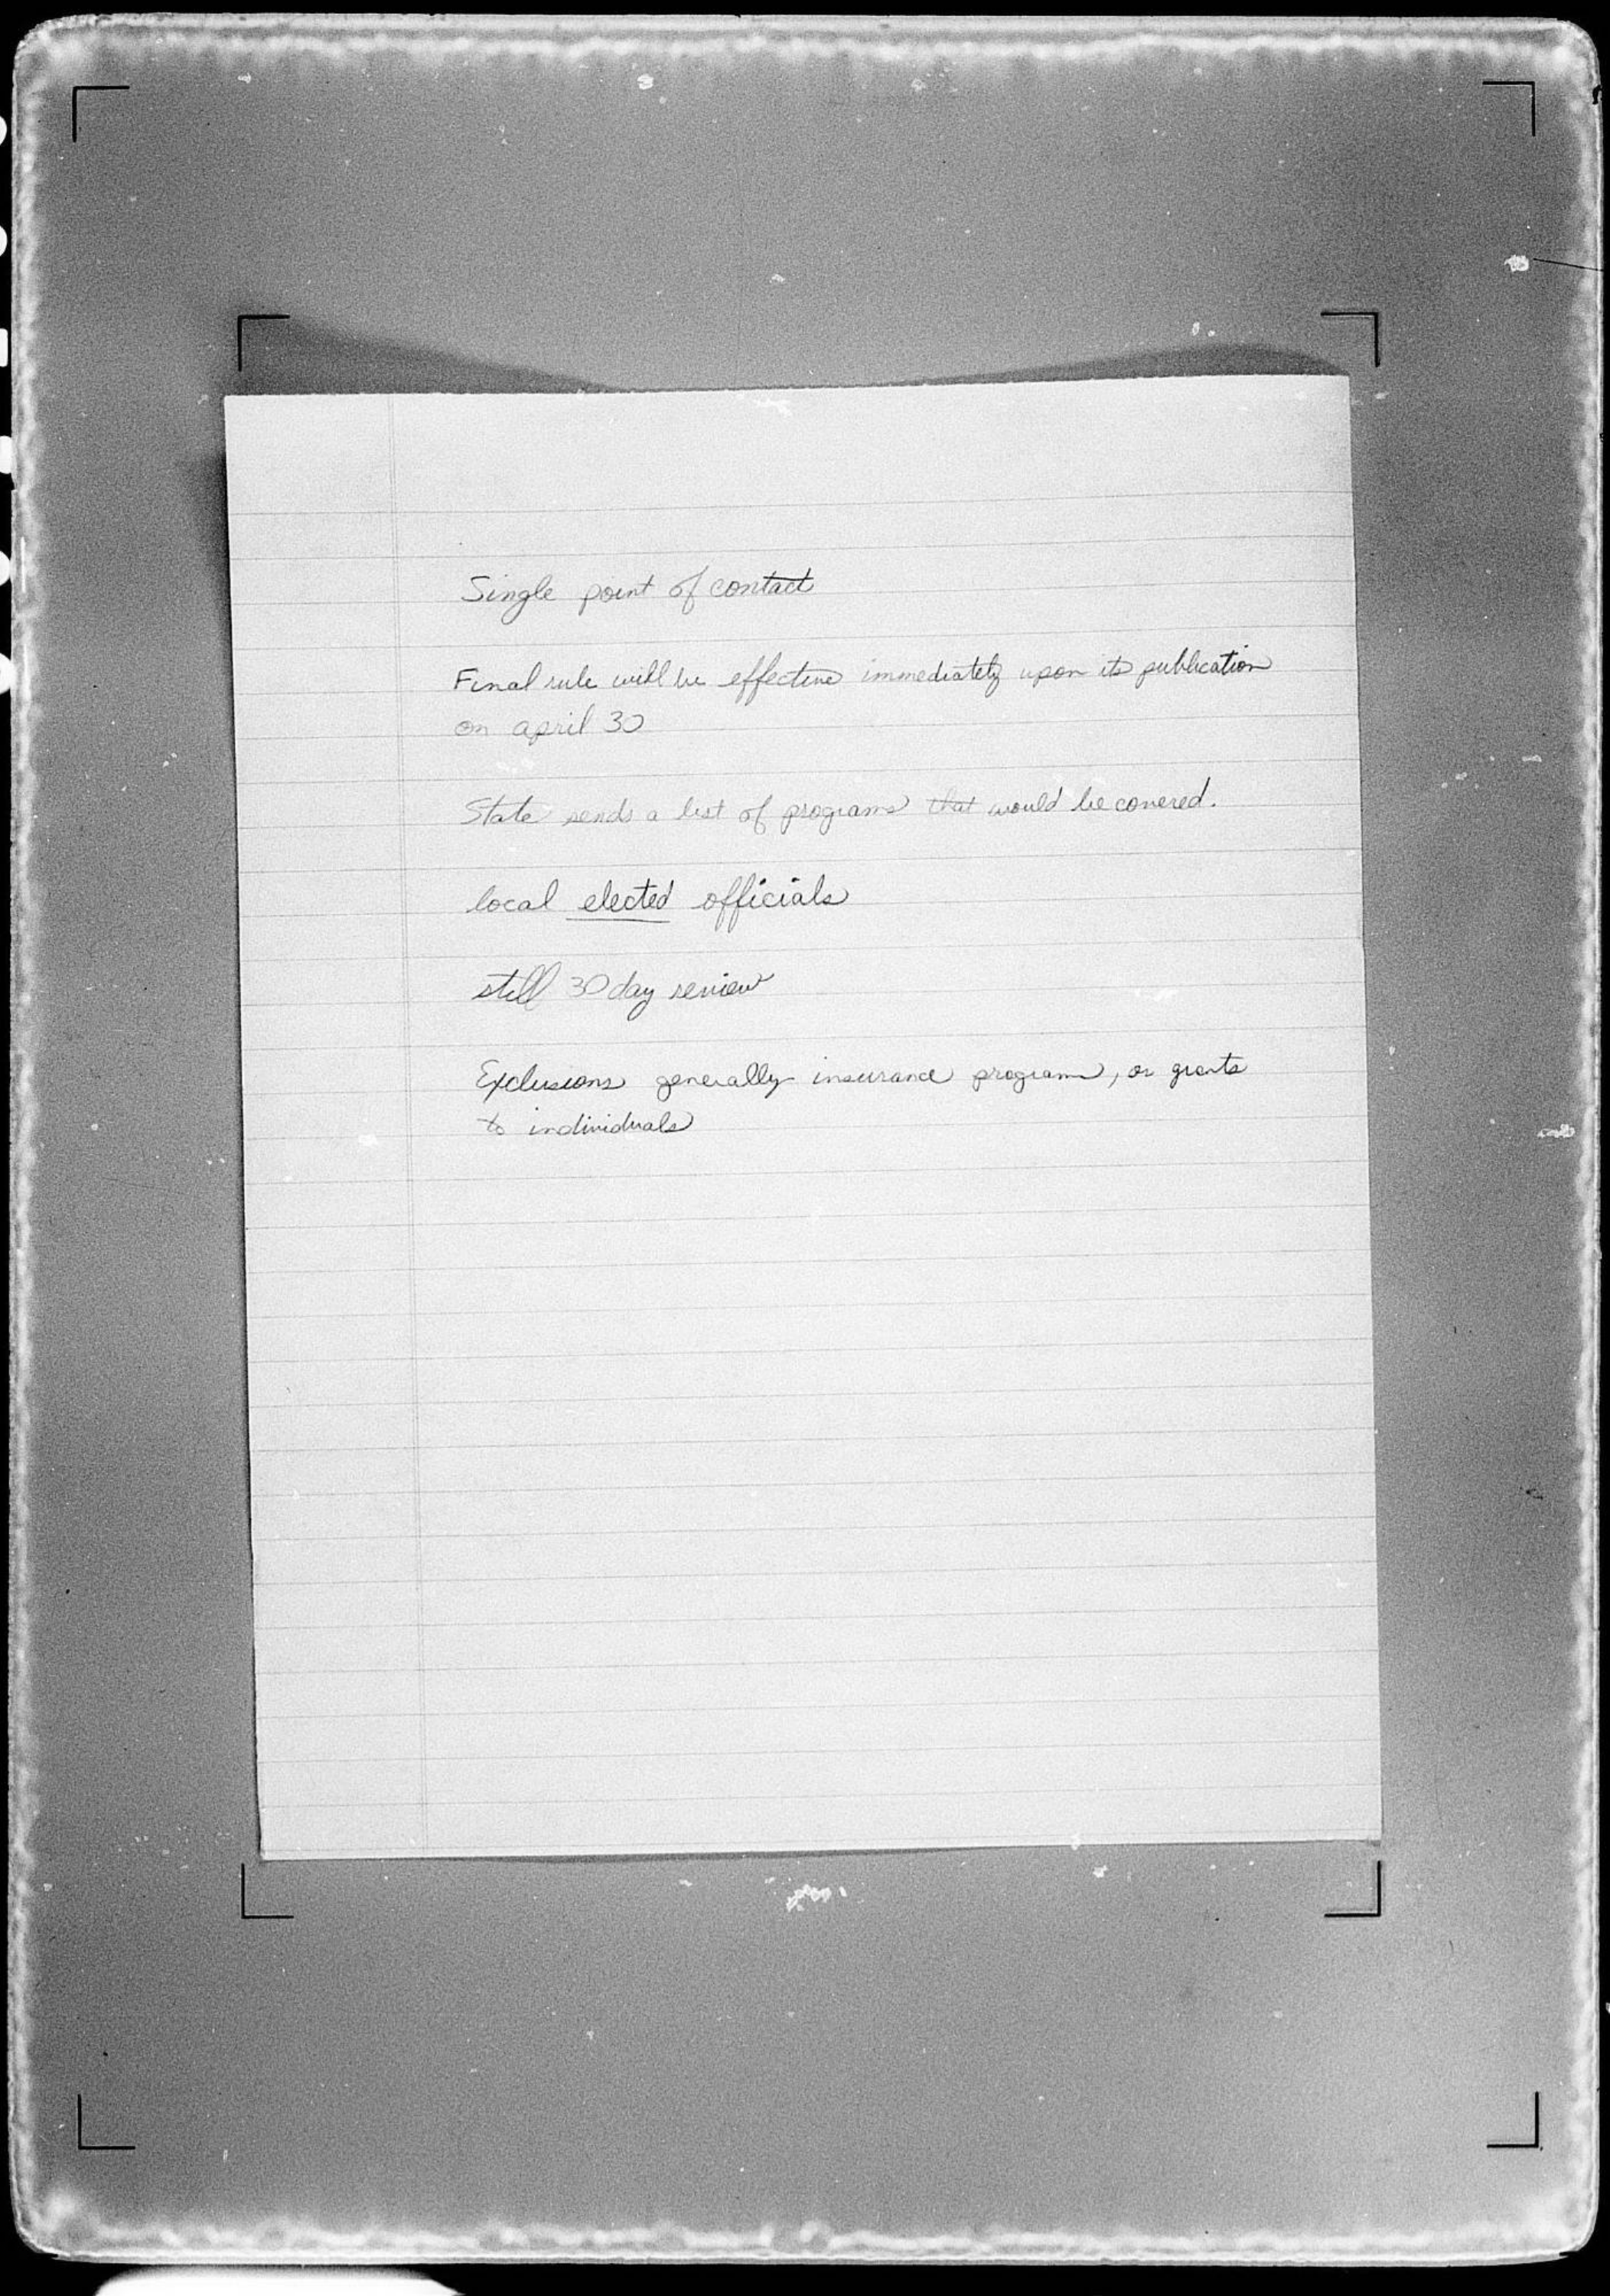 Single point of contact
Final rule will be effective immediately upon its publication
on april 30
State sends a list of programs that would be covered.
local elected officials
still 30 day review
Exclusions generally insurance programs, or grants
to individuals